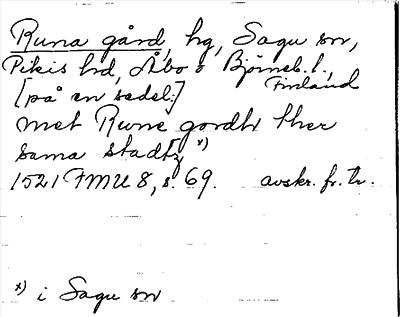 Runa gård, hg, Sagu sn,
Pikis hd, Åbo o Björneb. l.,
Finland
[på en sedel:]
met Rune gordhr ther
sama stadtz x)
1521 FMU 8, s. 69. avskr. fr. tr.
x) i Sagu sn